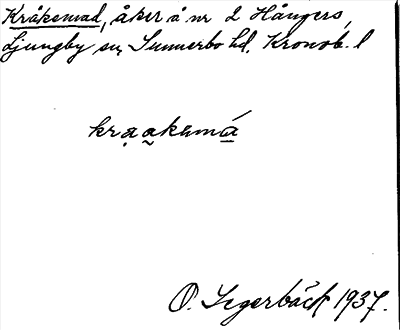 Kråkemad, åker å nr 2 Hångers,
Ljungby sn, Sunnerbo hd. Kronob. l
krạa̰kemá̲
O. Segerbäck 1937.